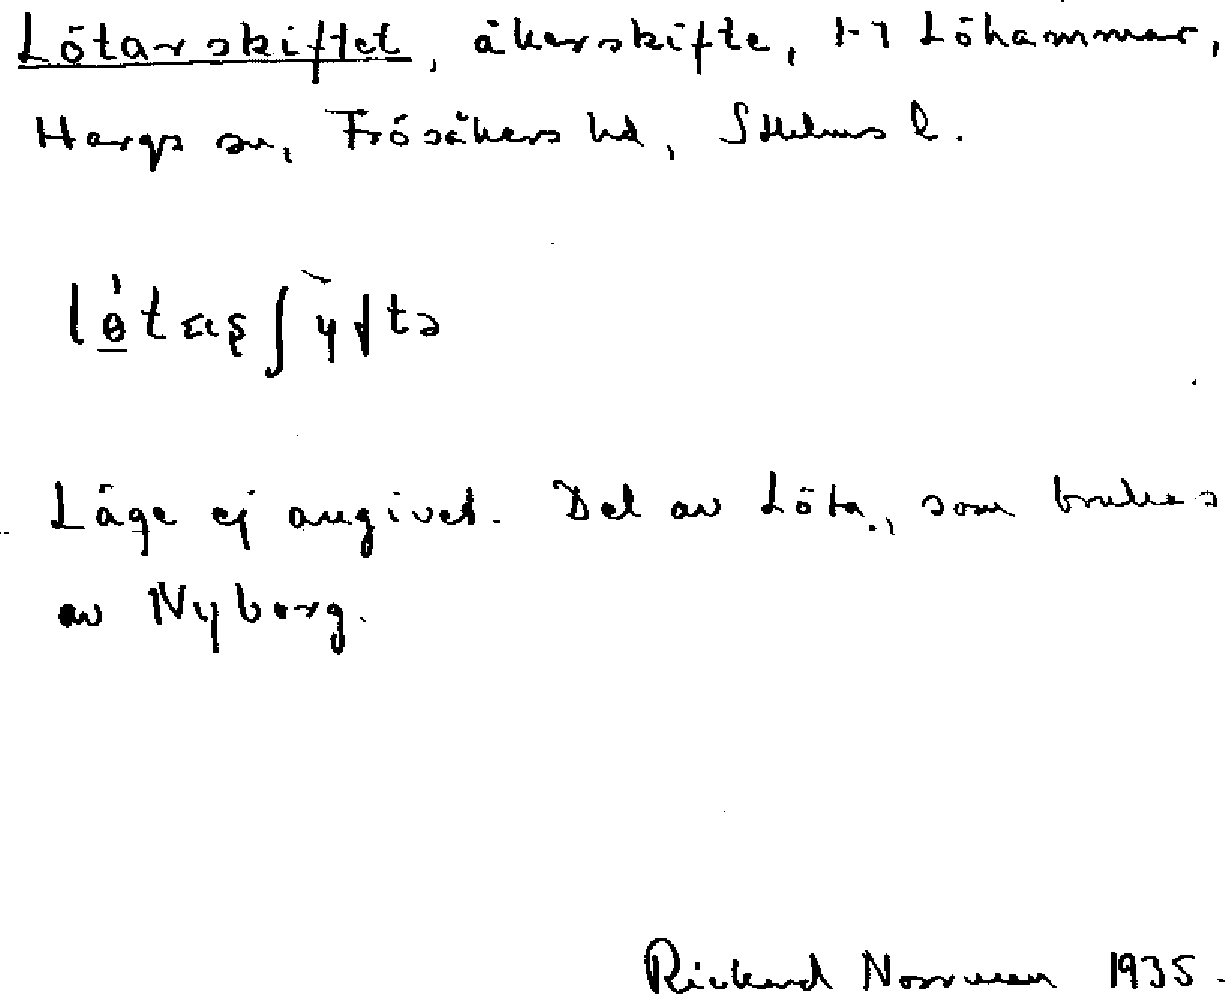 Lötarskiftet, åkerskifte, t-7 Löhammar,
Hargs sn, Frösåkers hd, Sthlms l.
Läge ej angivet. Del av Löta, som brukas
av Nyborg.
Rickard Norrman 1935.